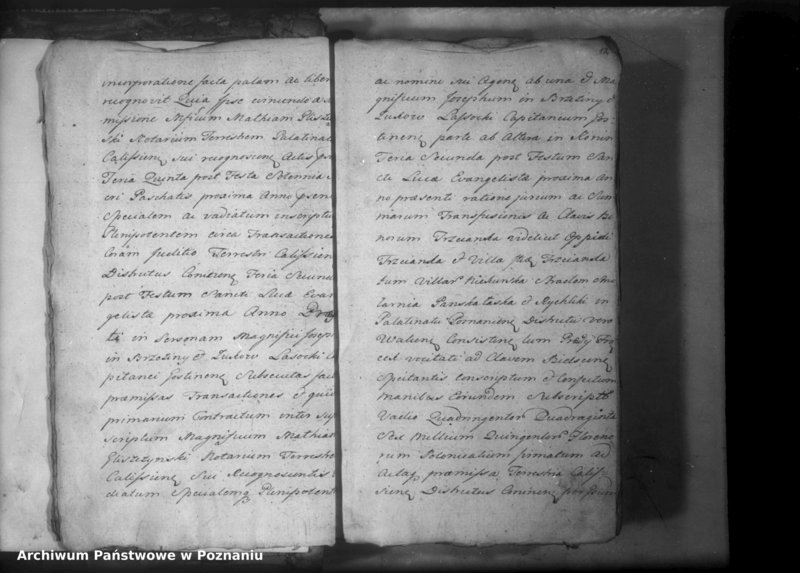 incorporatione facta palam ac liber
recognovit Quia Ipse evincendo a
missione Mficum Mathiam Gliszczyn
ski Notarium Terrestrem Palatinat
Calissien sui recognoscen Actis
Feria Quinta post Festa Solennia
cri Paschatis proxima Anno psen
Specialem ac vadiatum inscriptu
Plenipotentem circa Transactiones
Coram Judicio Terrestri Calissien
Districtus Coninen Feria Secunda
post Festum Sancti Lucæ Evan
gelistæ proxima Anno
ti in Personam Magnifici Joseph
in Brzeziny & Zukow Lasocki
pitanei Gostinen Subsecutas fact
præmissas Transactiones & qui
primarium Contractum inter
scriptum Magnificum Mathiam
Gliszczynski Notarium Terrestre
Calissien Sui Recognoscentis
diatum Specialemq Plenipotent
ac nomine sui Agen ab una & Ma
gnificum Josephum in Brzeziny &
Zukow Lassocki Capitaneum Gos
tinen parte ab Altera in Konin
Feria Secunda post Festum San
cti Lucæ Evangelistæ proxima An
no præsenti rations jurium ac Sum
marum Transfusionis ac Clavis Bo
norum Trzcianka videlicet Oppidi
Trzcianka & Villæ Trzcianka
tum Villar Biernunska Stradun
larnia Panskalaska & Rychlik in
Palatinatu Posnanien Districtu vero
Walcen Consisten tum Prædy
cest vocitati ad Clavem Bielscen
Spectantis conscriptum & Confectum
manibus Eorundem Subscript
Vadio Quadringentor Quadraginta
Sex Millium Quingentor Floreno
rum Polonicalium firmatum ad
Acta præmissa Terrestria Calis
sien Districtus Coninen
Archiwum Państwowe w Poznaniu